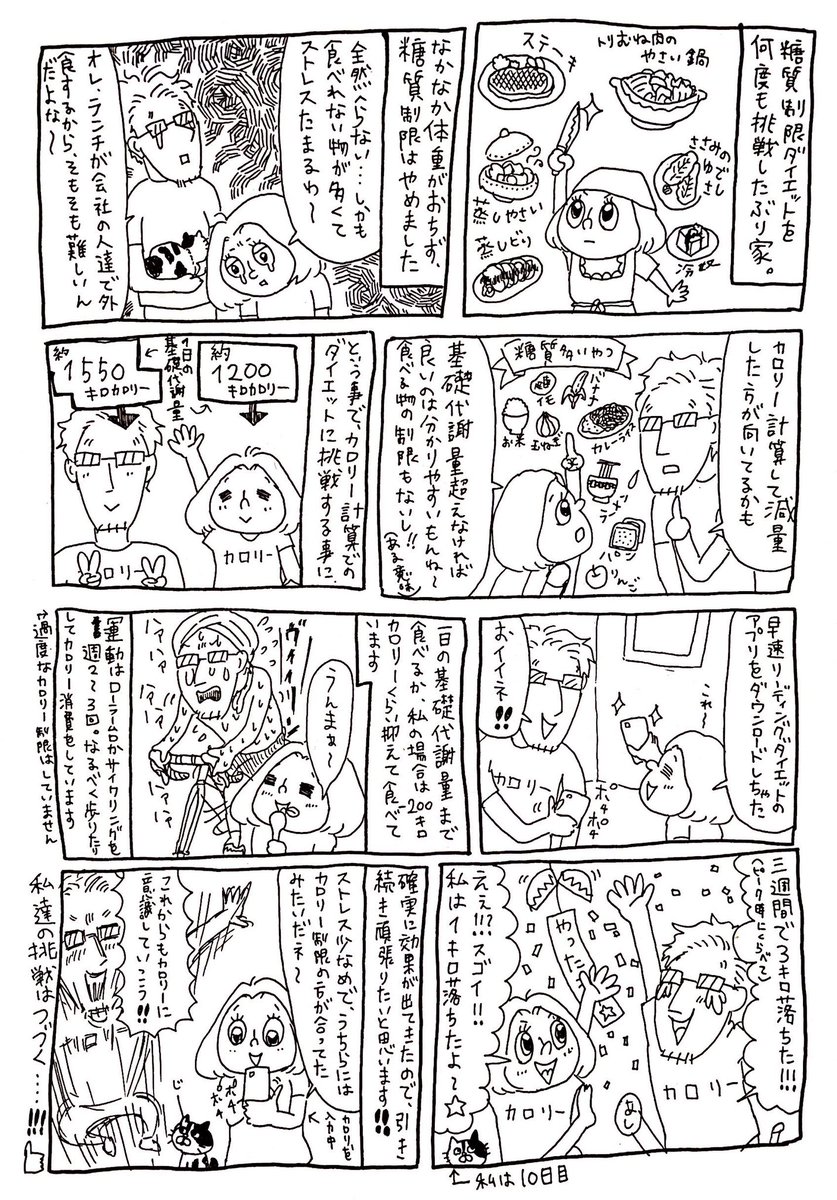 糖質制限ダイエットを
何度も挑戦したぶり家。
トリむね肉の
やさい鍋
ステーキ
ささみの
ゆでさし
蒸しやさい
冷奴
蒸しどり
なかなか体重がおちず、
糖質制限はやめました
全然へらない…しかも
食べれない物が多くて
ストレスたまるわ〜
オレ、ランチが会社の人達で外
食するから、そもそも難しいん
だよな〜
カロリー計算して減量
した方が向いてるかも
糖質多いやつ
バナナ
お米
玉ねぎ
カレーライス
ラーメン
パン
りんご
基礎代謝量超えなければ
良いのは分かりやすいもんね〜
食べる物の制限もないし!!
(ある意味)
という事で、カロリー計算での
ダイエットに挑戦する事に、
約
1200
キロカロリー
1日の
基礎代謝量
約
1550
キロカロリー
カロリー
ロリー
早速リーディングダイエットの
アプリをダウンロードしちゃた
これ〜
おイイネ!!
ポチ
ポチ
カロリー
一日の基礎代謝量まで
食べるか 私の場合は200キロ
カロリーくらい抑えて食べて
います
うんまぁ〜
ヴィィーー
ハァハァ
ハァハァ
ハァハァ
運動はローラー台かサイクリングを
週2〜3回。なるべく歩いたり
してカロリー消費をしています
過度なカロリー制限はしていません
三週間で3キロ落ちた!!!
(ピーク時にくらべて)
やった
ええ!!?スゴイ!!
私は1キロ落ちたよ〜☆
カロリー
カロリー
←私は10日目
確実に効果が出てきたので、引き
続き頑張りたいと思います!!
ストレス少なめで、うちらには
カロリー制限の方が合ってた
みたいだネ〜
ポチ
ポチ
カロリーを
入力中
これからもカロリーに
意識していこう!!
じー
私達の挑戦はつづく……!!!